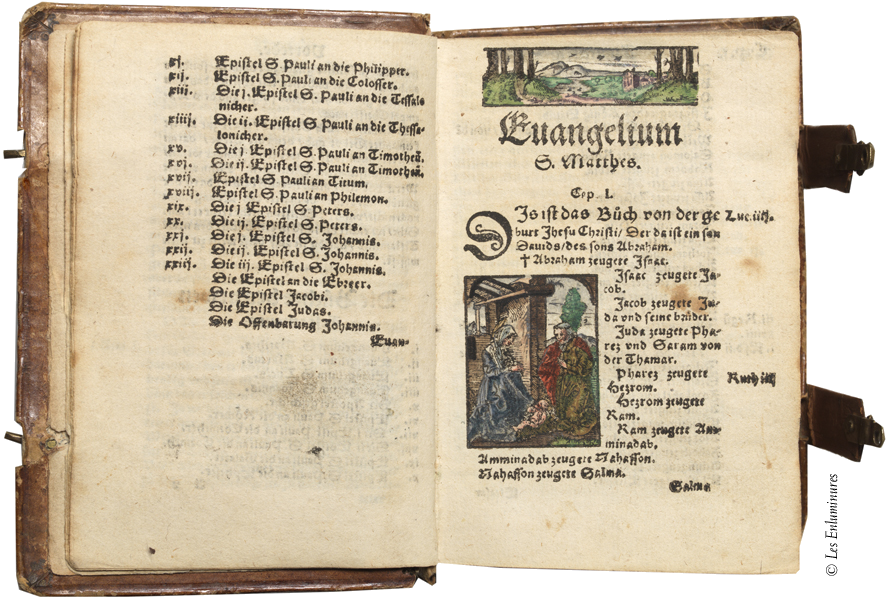 xj. Epistel S. Pauli an die Philipper.
xij. Epistel S. Pauli an die Colosser.
xiij. Die j. Epistel S. Pauli an die Tessalo
nicher.
xiiij. Die ii. Epistel S. Pauli an die Thessa-
lonicher.
xv. Die j. Epistel S. Pauli an Timotheū.
xvj. Die ij. Epistel S. Pauli an Timotheū.
xvij. Epistel S. Pauli an Titum.
xviij. Epistel S. Pauli an Philemon.
xix. Die j Epistel S. Peters.
xx. Die ij. Epistel S. Peters.
xxj. Die j. Epistel S. Johannis.
xxij. Die ij. Epistel S. Johannis.
xxiij. Die iij. Epistel S. Johannis.
Die Epistel an die Ebreer.
Die Epistel Jacobi.
Die Epistel Judas.
Die Offenbarung Johannis.
Euan-
Euangelium
S. Matthes.
Cap. I.
DJs ist das Büch von der ge
burt Jhesu Christi/ Der da ist ein son
Dauids/des sons Abraham.
† Abraham zeugete Jsaac.
Jsaac zeugete Ja-
cob.
Jacob zeugete Ju-
da vnd seine brüder.
Juda zeugete Pha-
rez vnd Saram von
der Thamar.
Pharez zeugete
Hezrom.
Hezrom zeugete
Ram.
Ram zeugete Am-
minadab.
Amminadab zeugete Nahasson.
Nahasson zeugete Salma.
Salma
Luc. iij.
Ruth iiij
© Les Enluminures